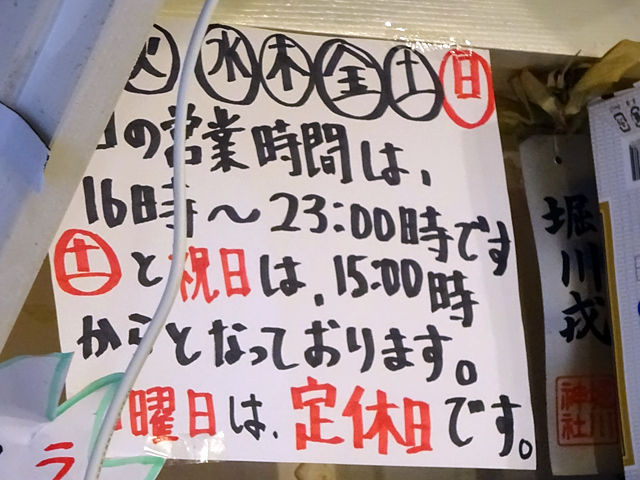 火 水 木 金 土 日
の営業時間は、
16時～23:00時です
土と祝日は、15:00時
からとなっております。
曜日は、定休日です。
ラ
堀川戎
堀川
神社